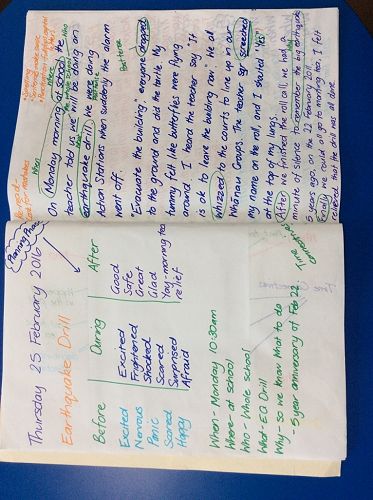 Planning Phase
Thursday 25 February 2016
Earthquake Drill
Before
During
After
Excited
Nervous
Panic
Scared
Happy
Excited
Frightened
Shocked
Scared
Surprised
Afraid
Good
Safe
Great
Glad
Yay-morning tea
relief
When - Monday 10:30am
Where - at school
Who - Whole school
What - EQ Drill
Why - so we know what to do
- 5 year anniversary of Feb 22
When
Where
Who
On Monday morning at school the
teacher told us we will be doing an
earthquake drill. We were doing
Action Stations when suddenly the alarm
went off.
"Evacuate the building," everyone dropped
to the ground and did the turtle. My
tummy felt like butterflies were flying
around. I heard the teacher say, "It
is ok to leave the building now." We all
whizzed to the courts to line up in our
Whānau Groups. The teacher screeched
my name on the roll, and I shouted "Yes"
at the top of my lungs.
After we finished the roll call, we had a
minute of silence to remember the big earthquake
5 years ago, on the 22 February 2011.
Finally we could go to morning tea, I felt
relieved that the drill was all done.